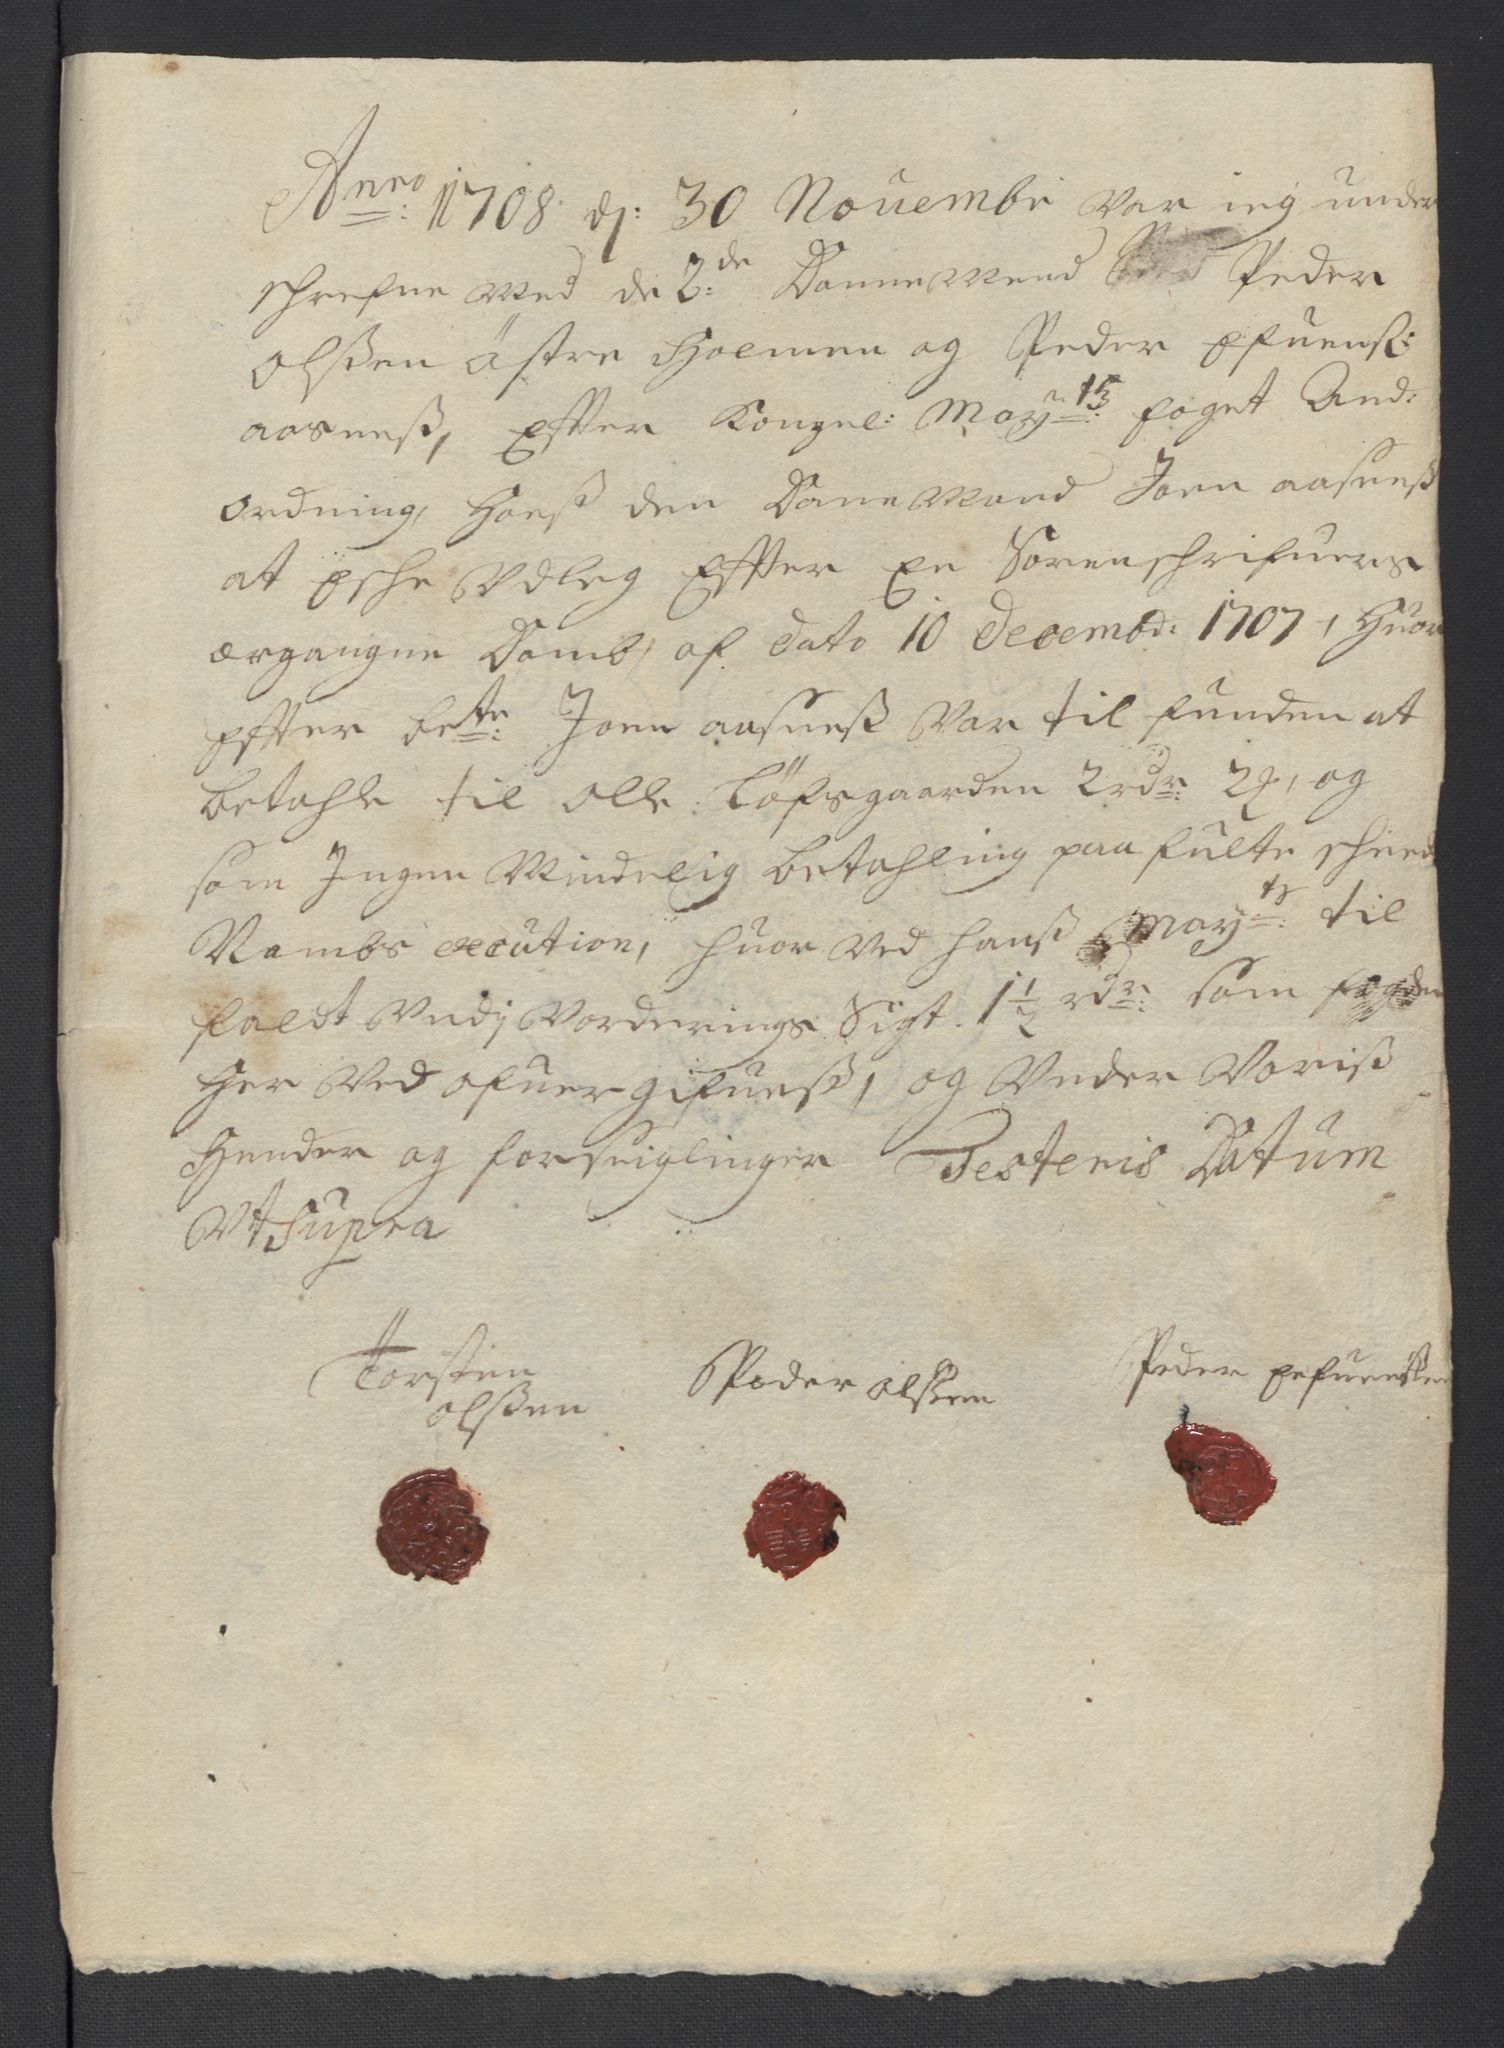 Anno: 1708 dj: 30 Nouembr var ieg under
schrefne med de 2:de Dannemend Peder
olßen östre Holmen og Peder Efuenß:
aasneß, Effter Kongel: May:ts foget And:
ordning, Hoeß den Danemand Joen aasneß
at Eshe Vdleg Effter En Sorenschrifuers
ergangne Domb, af dato 10 Decembr: 1707, Huor
Effter bete: Joen aasneß Var til funden at
betahle til Olle Löfsgaarden 2 rdr: 2 , og
som Ingen Mindelig betahling paa fulte scheed
Nambs execution, huor ved hanß May:ts til
faldt Vndj Vorderings Sigt. 1½ rdr: som fogden
Her Ved ofuergifueß, og Vnder Voriß
Hender og forseiglinger Testeris Datum
Vt Supra
Torsten
olßen
Peder olßen
Peder Efuenßen